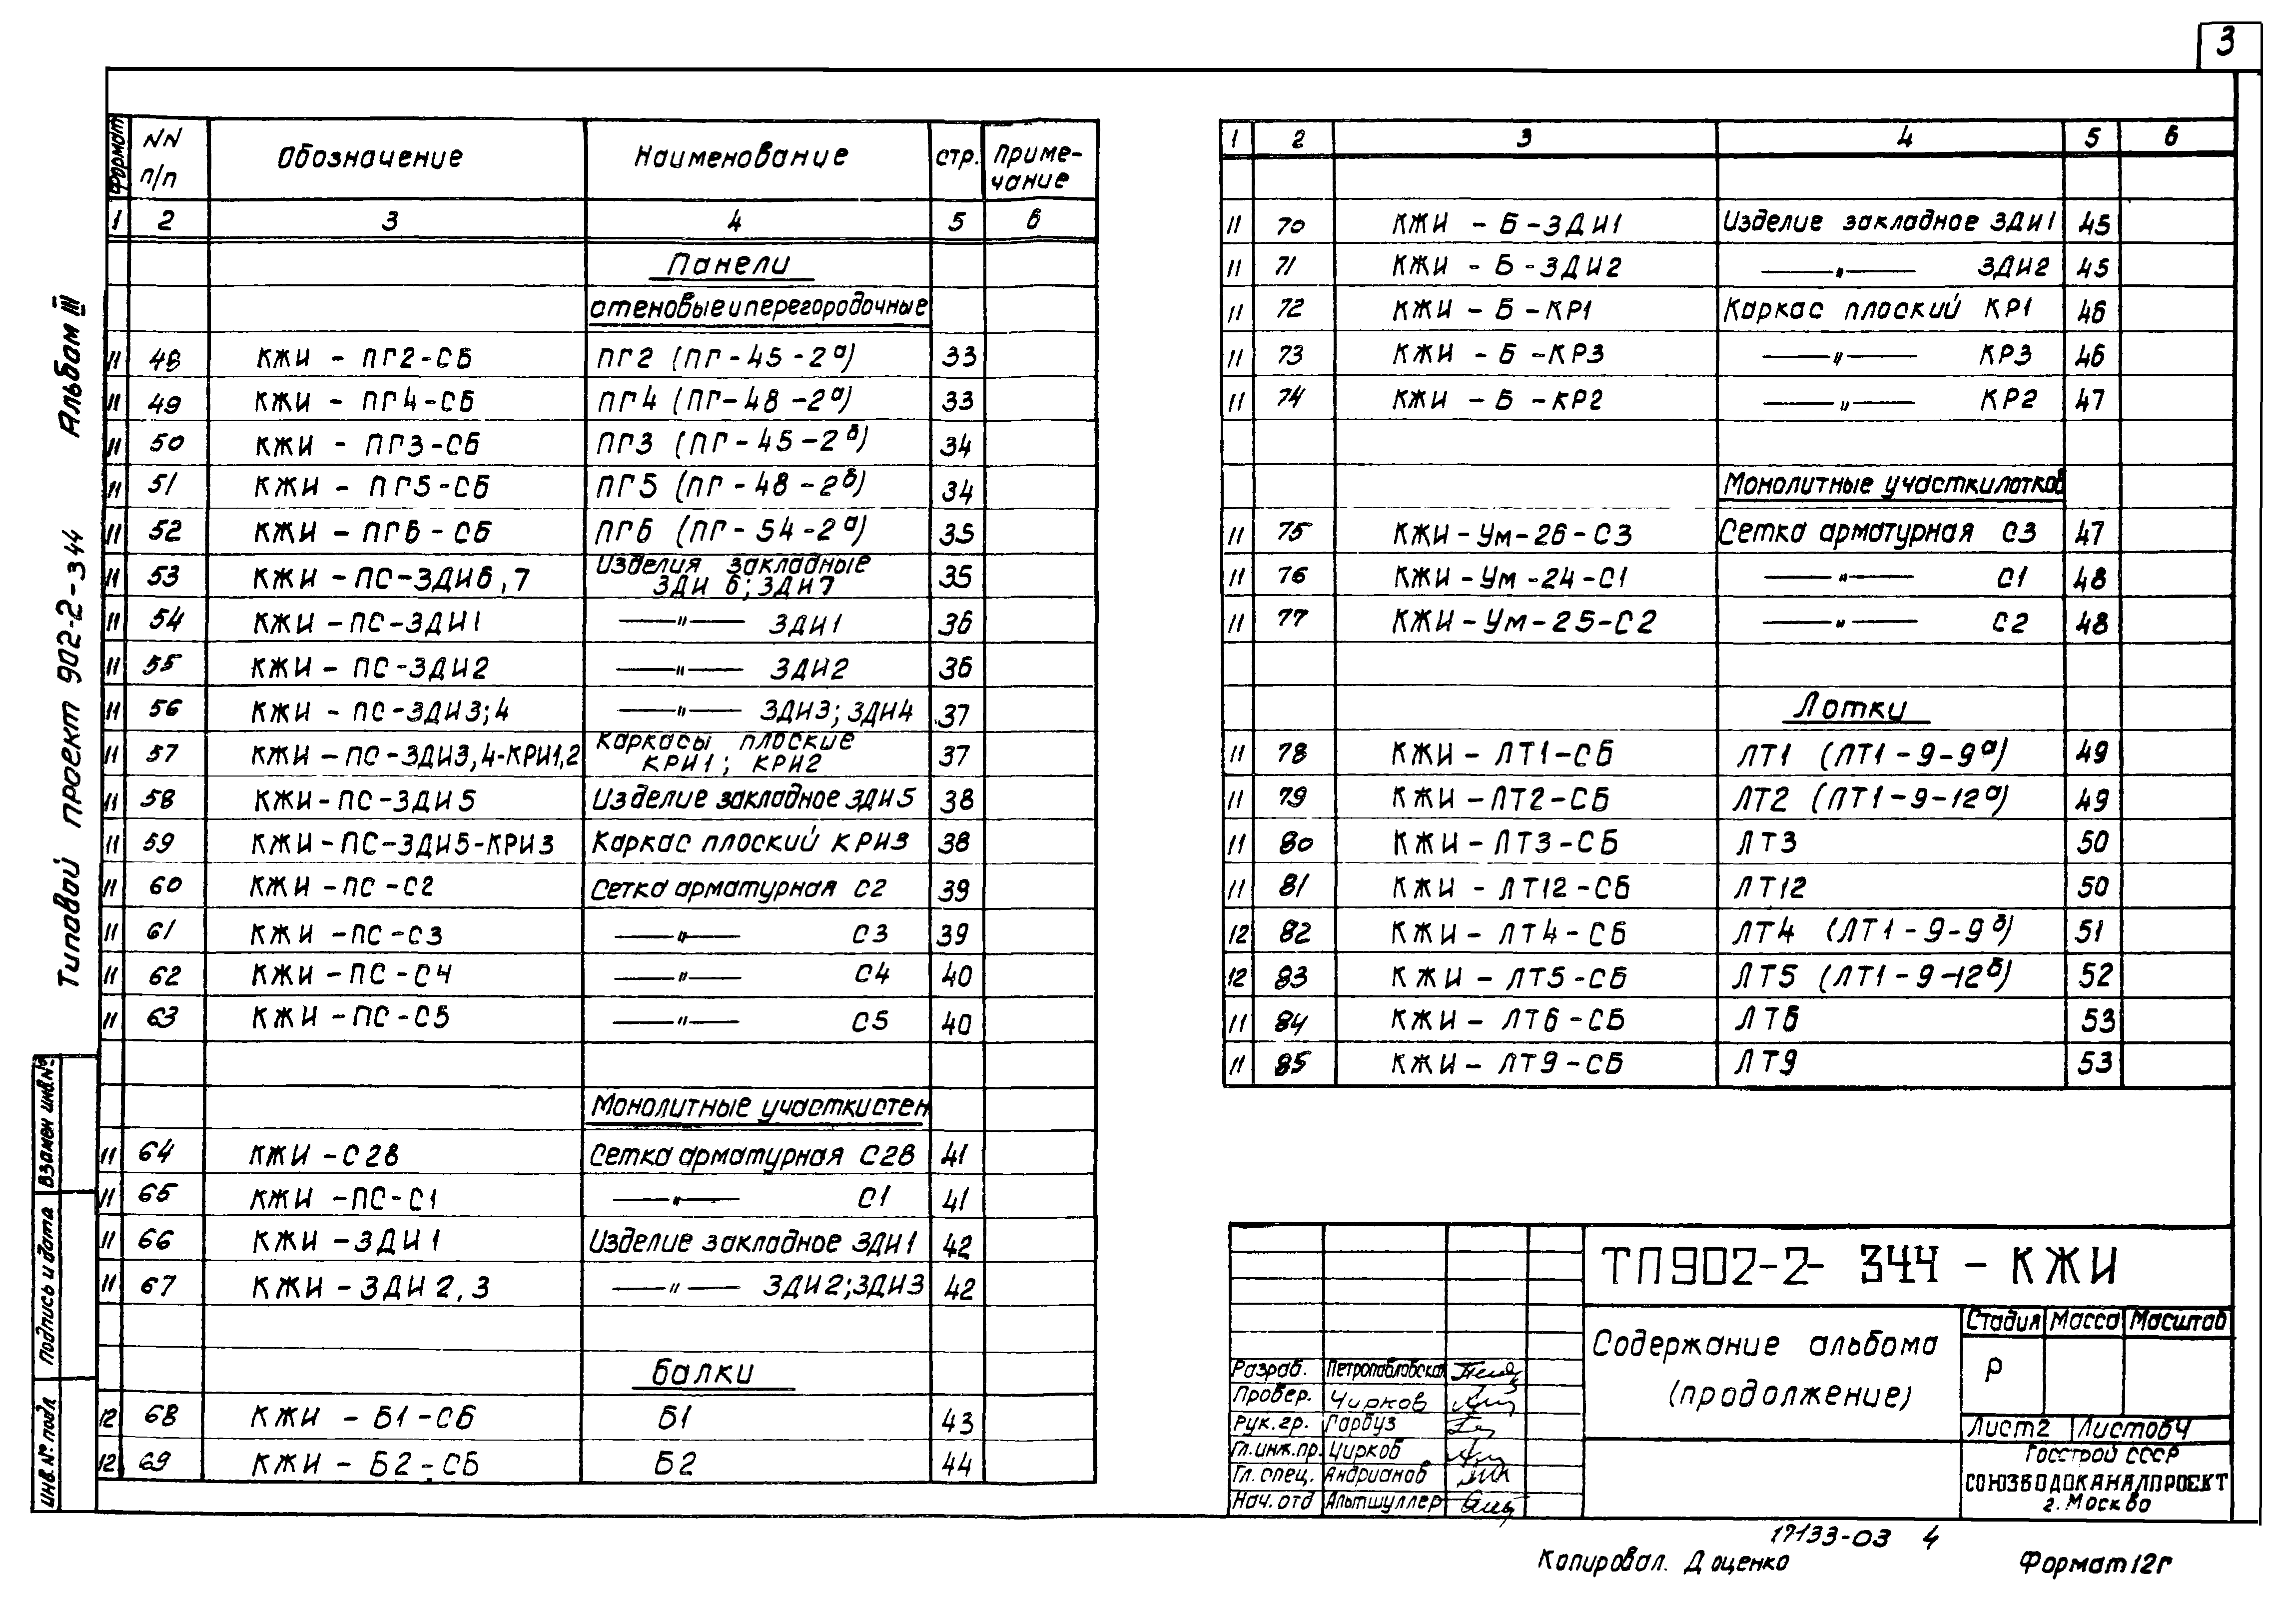 3
Типовой проект 902-2-344 Альбом III
Формат NN п/п Обозначение Наименование стр. Приме-чание
1 2 3 4 5 6
Панели
стеновые и перегородочные
11 48 КЖИ - ПГ2-СБ ПГ2 (ПГ-45-2а) 33
11 49 КЖИ - ПГ4-СБ ПГ4 (ПГ-48-2а) 33
11 50 КЖИ - ПГ3-СБ ПГ3 (ПГ-45-2б) 34
11 51 КЖИ - ПГ5-СБ ПГ5 (ПГ-48-2б) 34
11 52 КЖИ - ПГ6-СБ ПГ6 (ПГ-54-2а) 35
11 53 КЖИ - ПС-ЗДИ6,7 Изделия закладные ЗДИ 6; ЗДИ7 35
11 54 КЖИ - ПС-ЗДИ1 —"— ЗДИ1 36
11 55 КЖИ - ПС-ЗДИ2 —"— ЗДИ2 36
11 56 КЖИ - ПС-ЗДИ3;4 —"— ЗДИ3; ЗДИ4 37
11 57 КЖИ - ПС-ЗДИ3,4-КРИ1,2 Каркасы плоские КРИ1; КРИ2 37
11 58 КЖИ-ПС-ЗДИ5 Изделие закладное ЗДИ5 38
11 59 КЖИ-ПС-ЗДИ5-КРИ3 Каркас плоский КРИ3 38
11 60 КЖИ-ПС-С2 Сетка арматурная С2 39
11 61 КЖИ-ПС-С3 —"— С3 39
11 62 КЖИ-ПС-С4 —"— С4 40
11 63 КЖИ-ПС-С5 —"— С5 40
Монолитные участки стен
11 64 КЖИ-С28 Сетка арматурная С28 41
11 65 КЖИ-ПС-С1 —"— С1 41
11 66 КЖИ-ЗДИ1 Изделие закладное ЗДИ1 42
11 67 КЖИ-ЗДИ2,3 —"— ЗДИ2; ЗДИ3 42
Балки
12 68 КЖИ - Б1-СБ Б1 43
12 69 КЖИ - Б2-СБ Б2 44
1 2 3 4 5 6
11 70 КЖИ - Б-ЗДИ1 Изделие закладное ЗДИ1 45
11 71 КЖИ - Б-ЗДИ2 —"— ЗДИ2 45
11 72 КЖИ - Б-КР1 Каркас плоский КР1 46
11 73 КЖИ - Б-КР3 —"— КР3 46
11 74 КЖИ - Б-КР2 —"— КР2 47
Монолитные участки лотков
11 75 КЖИ-Ум-26-С3 Сетка арматурная С3 47
11 76 КЖИ-Ум-24-С1 —"— С1 48
11 77 КЖИ-Ум-25-С2 —"— С2 48
Лотки
11 78 КЖИ - ЛТ1-СБ ЛТ1 (ЛТ1-9-9а) 49
11 79 КЖИ - ЛТ2-СБ ЛТ2 (ЛТ1-9-12а) 49
11 80 КЖИ - ЛТ3-СБ ЛТ3 50
11 81 КЖИ - ЛТ12-СБ ЛТ12 50
12 82 КЖИ - ЛТ4-СБ ЛТ4 (ЛТ1-9-9б) 51
12 83 КЖИ - ЛТ5-СБ ЛТ5 (ЛТ1-9-12б) 52
11 84 КЖИ - ЛТ6-СБ ЛТ6 53
11 85 КЖИ - ЛТ9-СБ ЛТ9 53
Взамен инв.№
Подпись и дата
Инв. № подл.
ТП902-2-344-КЖИ
Содержание альбома
(продолжение)
Стадия Масса Масштаб
Р
Лист 2 Листов 4
Госстрой СССР
СОЮЗВОДОКАНАЛПРОЕКТ
г. Москва
Разраб. Петропавловская
Провер. Чирков
Рук. гр. Гарбуз
Гл. инж. пр. Чирков
Гл. спец. Андрианов
Нач. отд Альтшуллер
17133-03 4
Копировал. Доценко
Формат 12г